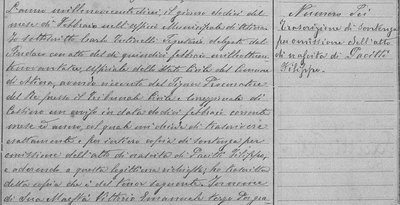 L'anno millenovecentotrè, il giorno dodici del
mese di Febbraio nell'ufficio Municipale di Atina
Io sottoscritto Carlo
Sindaco con atto del di quindici febbraio milleottocento
novantatre, uffiziale dello Stato Civile del Comune
di Atina, avendo ricevuto dal Signor Procuratore
del Re presso il Tribunale Civile e Correzionale di
Cassino un uffizio in data dodici febbraio corrente
mese ed anno, col quale mi chiede di trascrivere
esattamente e per intiero copia di sentenza per
omissione dell'atto di nascita di Pacitti Filippo,
e aderendo a questa legittima richiesta; ho trascritto
detta copia che è del tenor seguente. In nome
di Sua Maestà Vittorio Emanuele terzo per grazia
Numero Sei
Trascrizione di Sentenza
per omissione dell'atto
di nascita di Pacitti
Filippo.